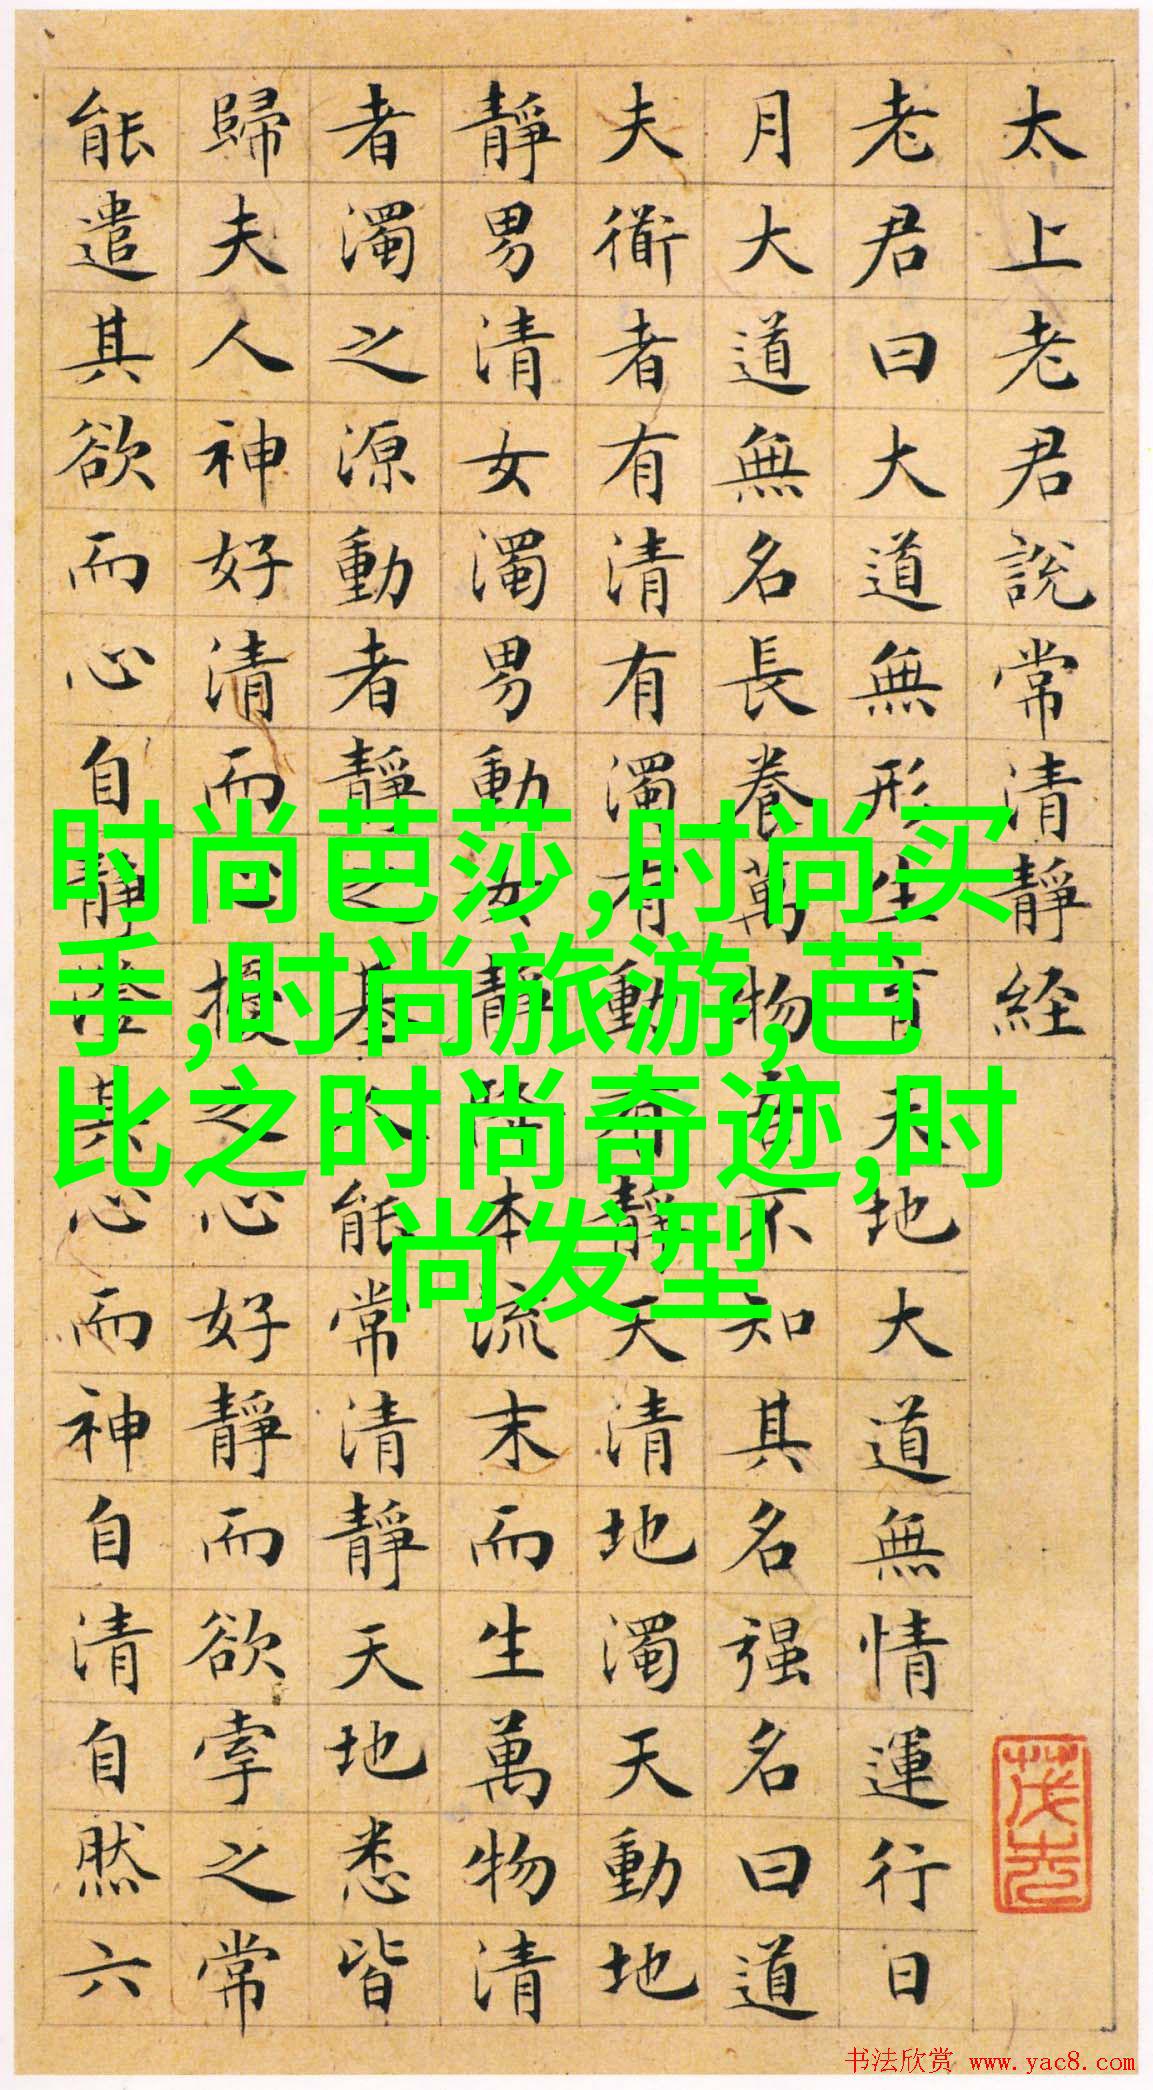 太上老君說常清靜経
老君曰大道無形生育天地大道無情運行日
月大道無名長養萬物吾不知其名强名曰道
夫衜者有清有濁有動有靜天清地濁天動地
靜男清女濁男動女靜降本流末而生萬物清
者濁之源動者靜之基人能常清靜天地悉皆
歸夫人神好清而心擾之心好靜而欲牽之常
能遣其欲而心自靜澄其心而神自清自然六
时尚芭莎,时尚买
手,时尚旅游,芭
比之时尚奇迹,时
尚发型
书法欣赏 www.yac8.com